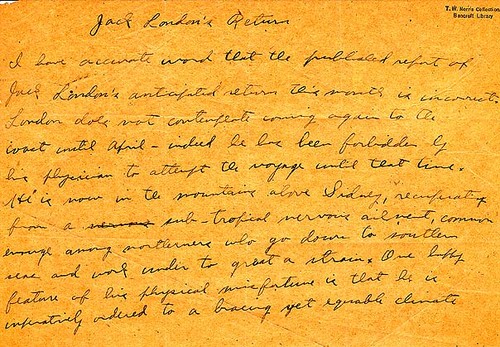 Jack London's Return
T. W. Norris Collection
Bancroft Library
I have accurate word that the published report of
Jack London's anticipated return this month is incorrect.
London does not contemplate coming again to the
coast until April - indeed he has been forbidden by
his physician to attempt the voyage until that time.
He is now in the mountains above Sidney, recuperating
from a nervous sub-tropical nervous ailment, common
enough among northerners who go down to southern
seas and work under to great a strain. One happy
feature of his physical misfortune is that he is
imperatively ordered to a bracing yet equable climate